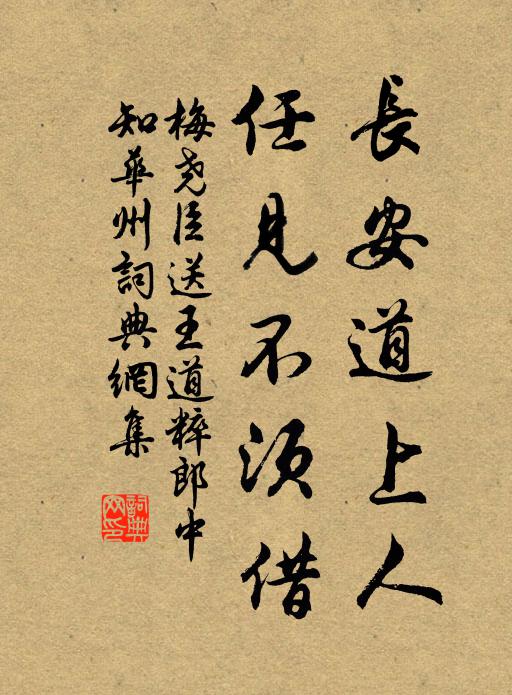 長安道上人
任見不須借
梅尧臣送王道粹郎中
知華州詞典網集
詞典網印